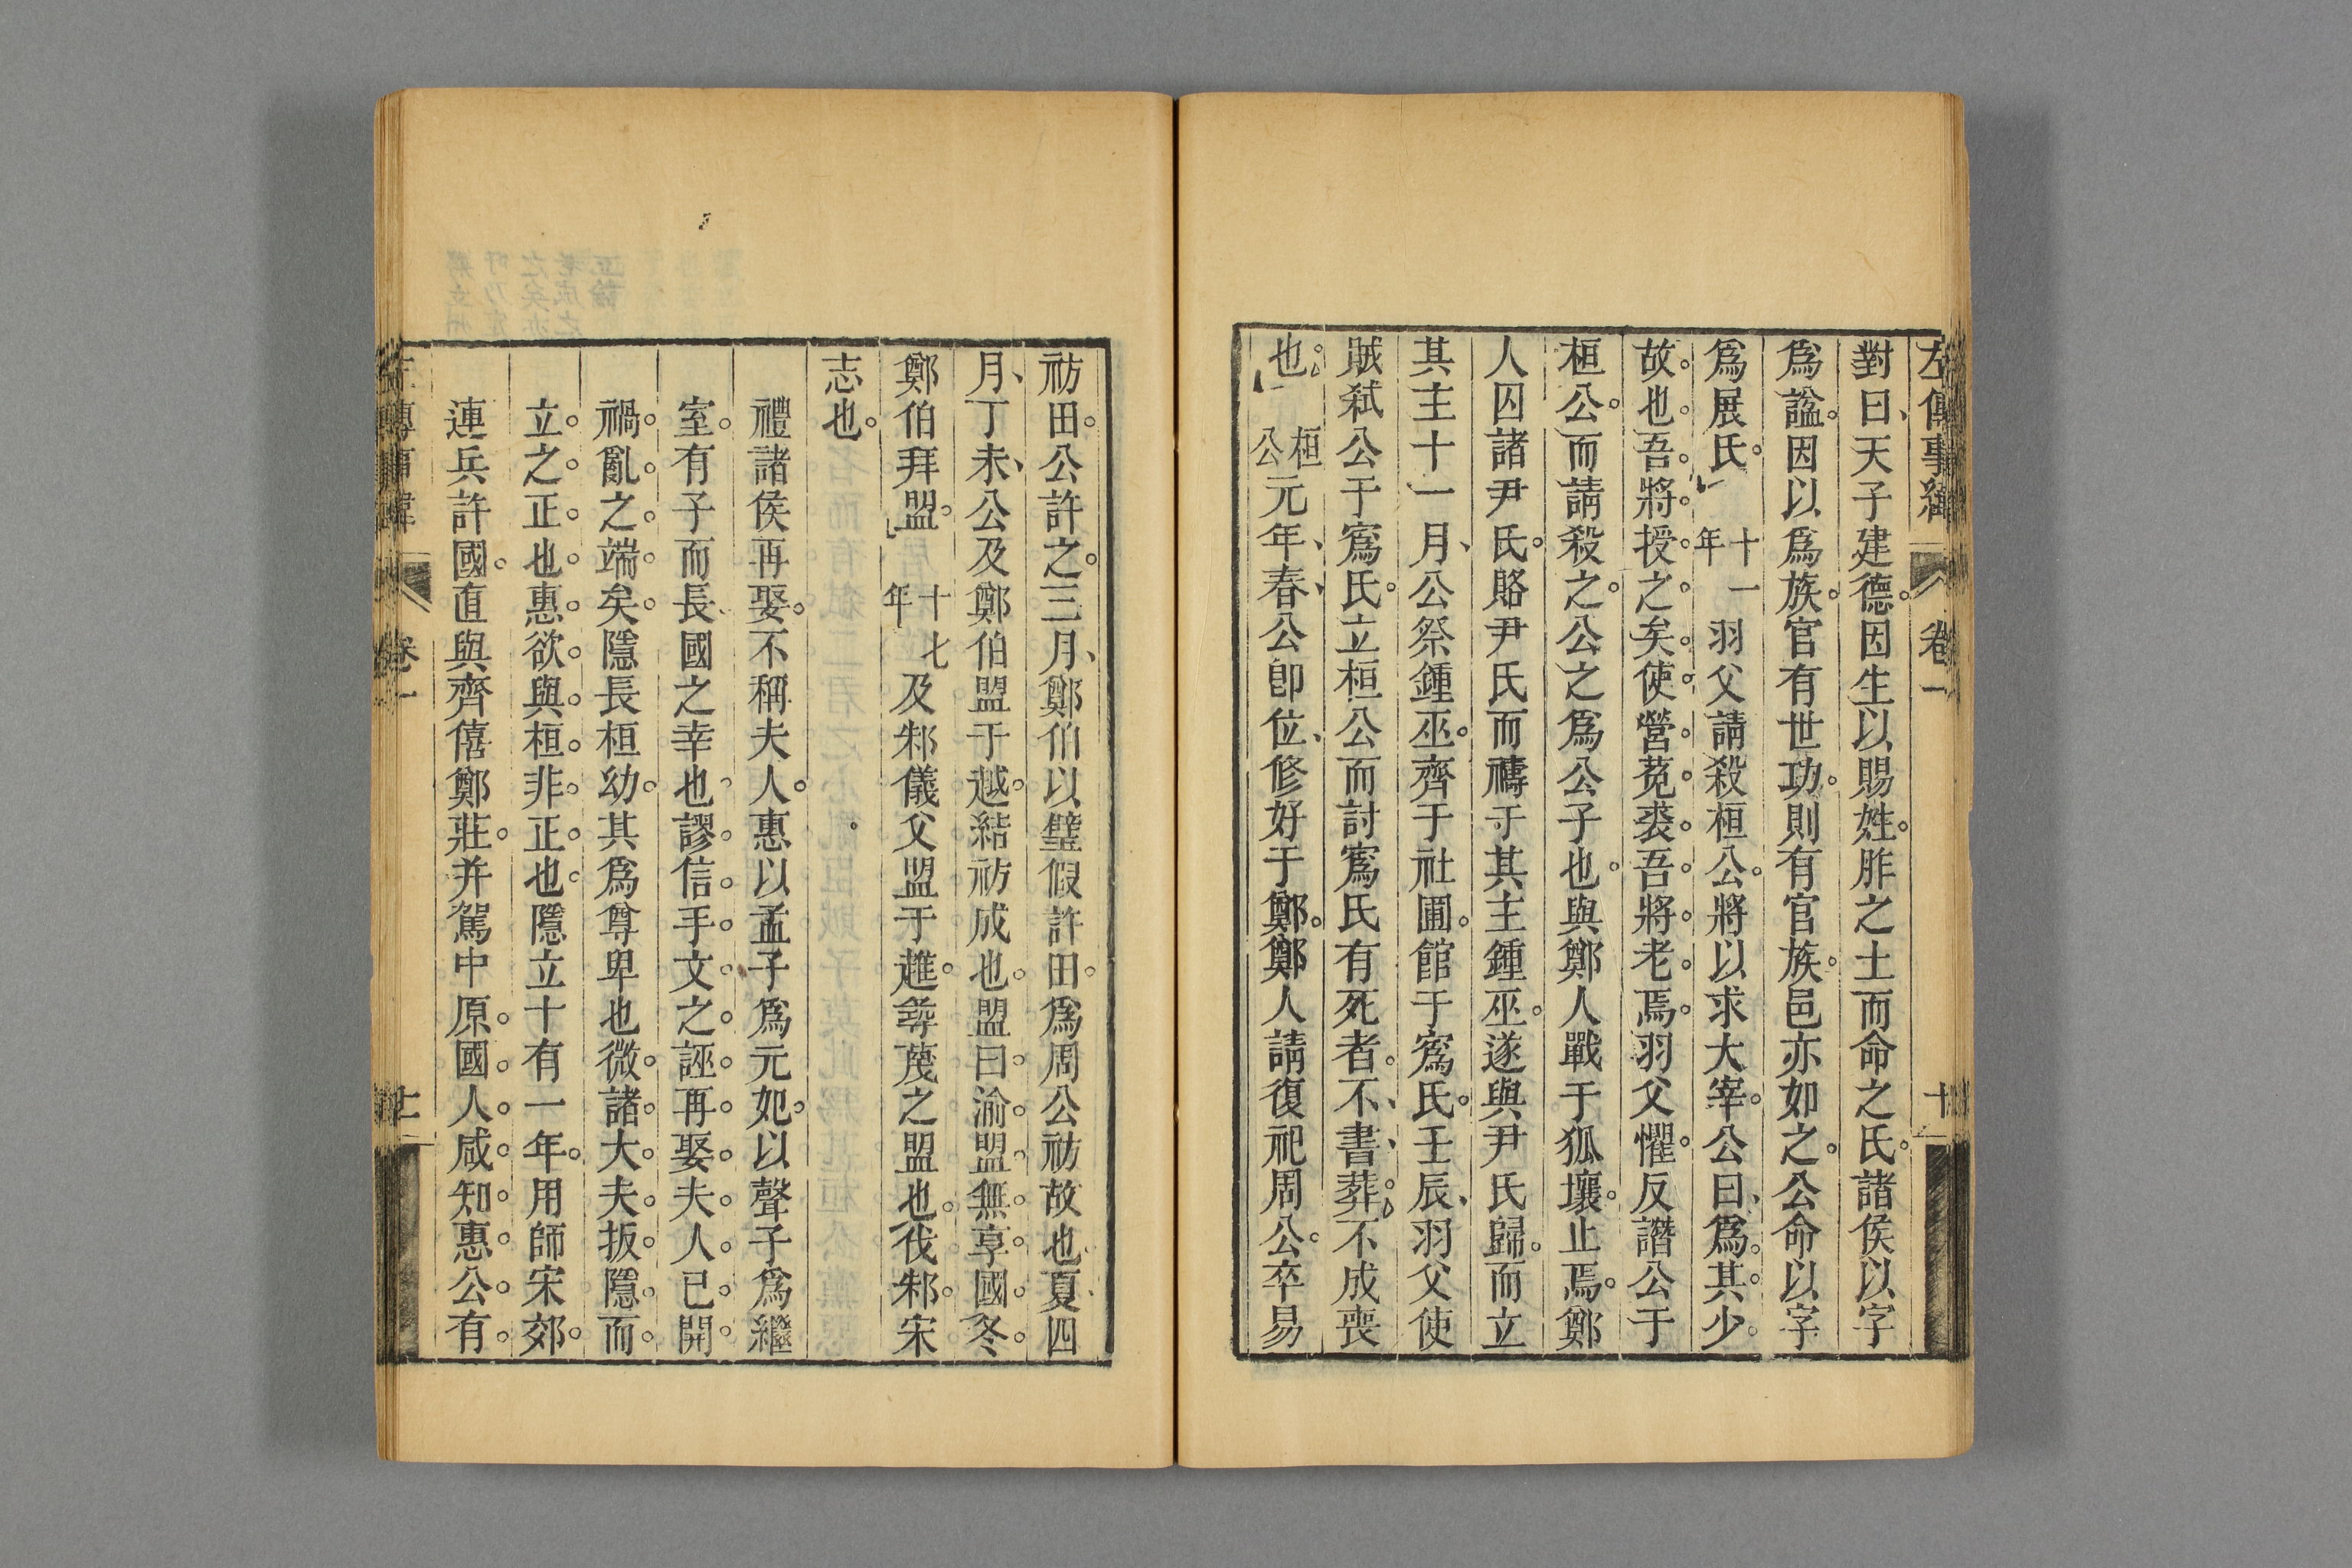 左傳事緯 卷一 十
對曰天子建德因生以賜姓胙之土而命之氏諸侯以字
爲諡因以爲族官有世功則有官族邑亦如之公命以字
爲展氏 十一年 羽父請殺桓公將以求大宰公曰爲其少
故也吾將授之矣使營菟裘吾將老焉羽父懼反譖公于
桓公而請殺之公之爲公子也與鄭人戰于狐壤止焉鄭
人囚諸尹氏賂尹氏而禱于其主鍾巫遂與尹氏歸而立
其主十一月公祭鍾巫齊于社圃館于寪氏壬辰羽父使
賊弒公于寪氏立桓公而討寪氏有死者不書葬不成喪
也 桓公元年春公卽位修好于鄭鄭人請復祀周公卒易
祊田公許之三月鄭伯以璧假許田爲周公祊故也夏四
月丁未公及鄭伯盟于越結祊成也盟曰渝盟無享國冬
鄭伯拜盟 十七年 及邾儀父盟于趡尋蔑之盟也伐邾宋
志也
禮諸侯再娶不稱夫人惠以孟子爲元妃以聲子爲繼
室有子而長國之幸也謬信手文之誣再娶夫人已開
禍亂之端矣隱長桓幼其爲尊卑也微諸大夫扳隱而
立之正也惠欲與桓非正也隱立十有一年用師宋郊
連兵許國直與齊僖鄭莊并駕中原國人咸知惠公有
左傳事緯 卷一 十一